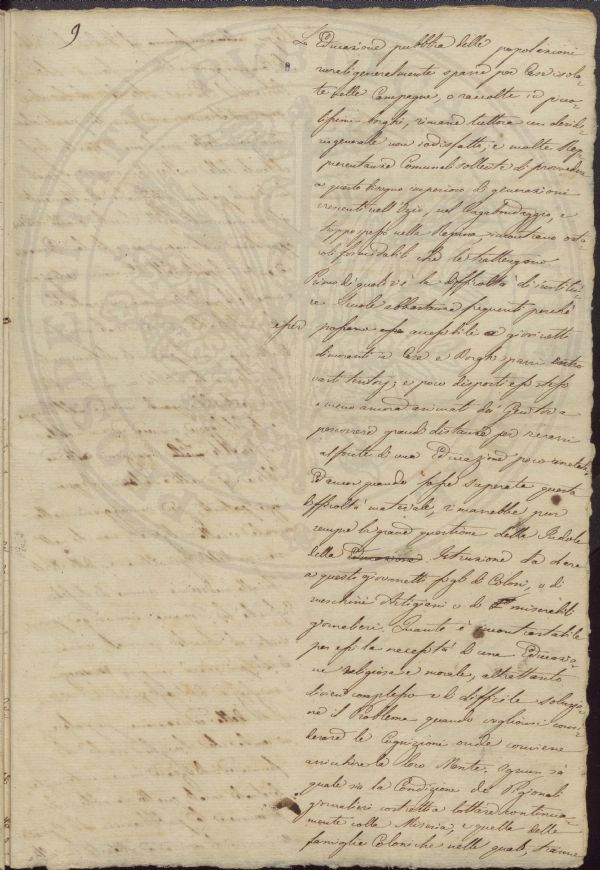 9
8
L'Educazione pubblica delle popolazioni
rurali generalmente sparse per Case isola-
te nelle Campagne, o raccolte in picco-
lissimi borghi, rimane tuttora un deside-
rio generale non sodisfatto, e molte Rap-
presentanze Comunali sollecite di provvedere
a questo bisogno imperioso di generazioni
crescenti nell'Ozio, nel Vagabondaggio, e
troppo spesso nella Rapina, incontrano osta-
coli formidabili che le trattengono.
Primo di quali è la difficoltà di instituì-
re Scuole abbastanza frequenti perchè
possano essere accessibili a giovinetti
dimoranti in Case e Borghi sparsi entro
vasti territorj; e poco disposti essi stessi
e meno ancora animati da' Genitori a
percorrere grandi distanze per recarsi
al fonte di una Educazione poco
Ed ancor quando fosse superata questa
difficoltà materiale, rimarrebbe pur
sempre la grand questione della Indole
della Educazione Istruzione da dare
a questi giovinetti figli di Coloni, o di
meschini Artigiani o di miserabili
giornalieri. Quanto è incontrastabile
per essi la necessità di una Educazio-
ne religiosa e morale, altrettanto
diviene complesso e di difficile soluzio-
ne il Problema quando vogliansi consi-
derare le Cognizioni onde conviene
arricchire la loro Mente. Ognun sà
quale sia la Condizione de'
giornalieri costretta lottare continua-
mente colla Miseria; e quella delle
famiglie Coloniche nelle quali, tranne